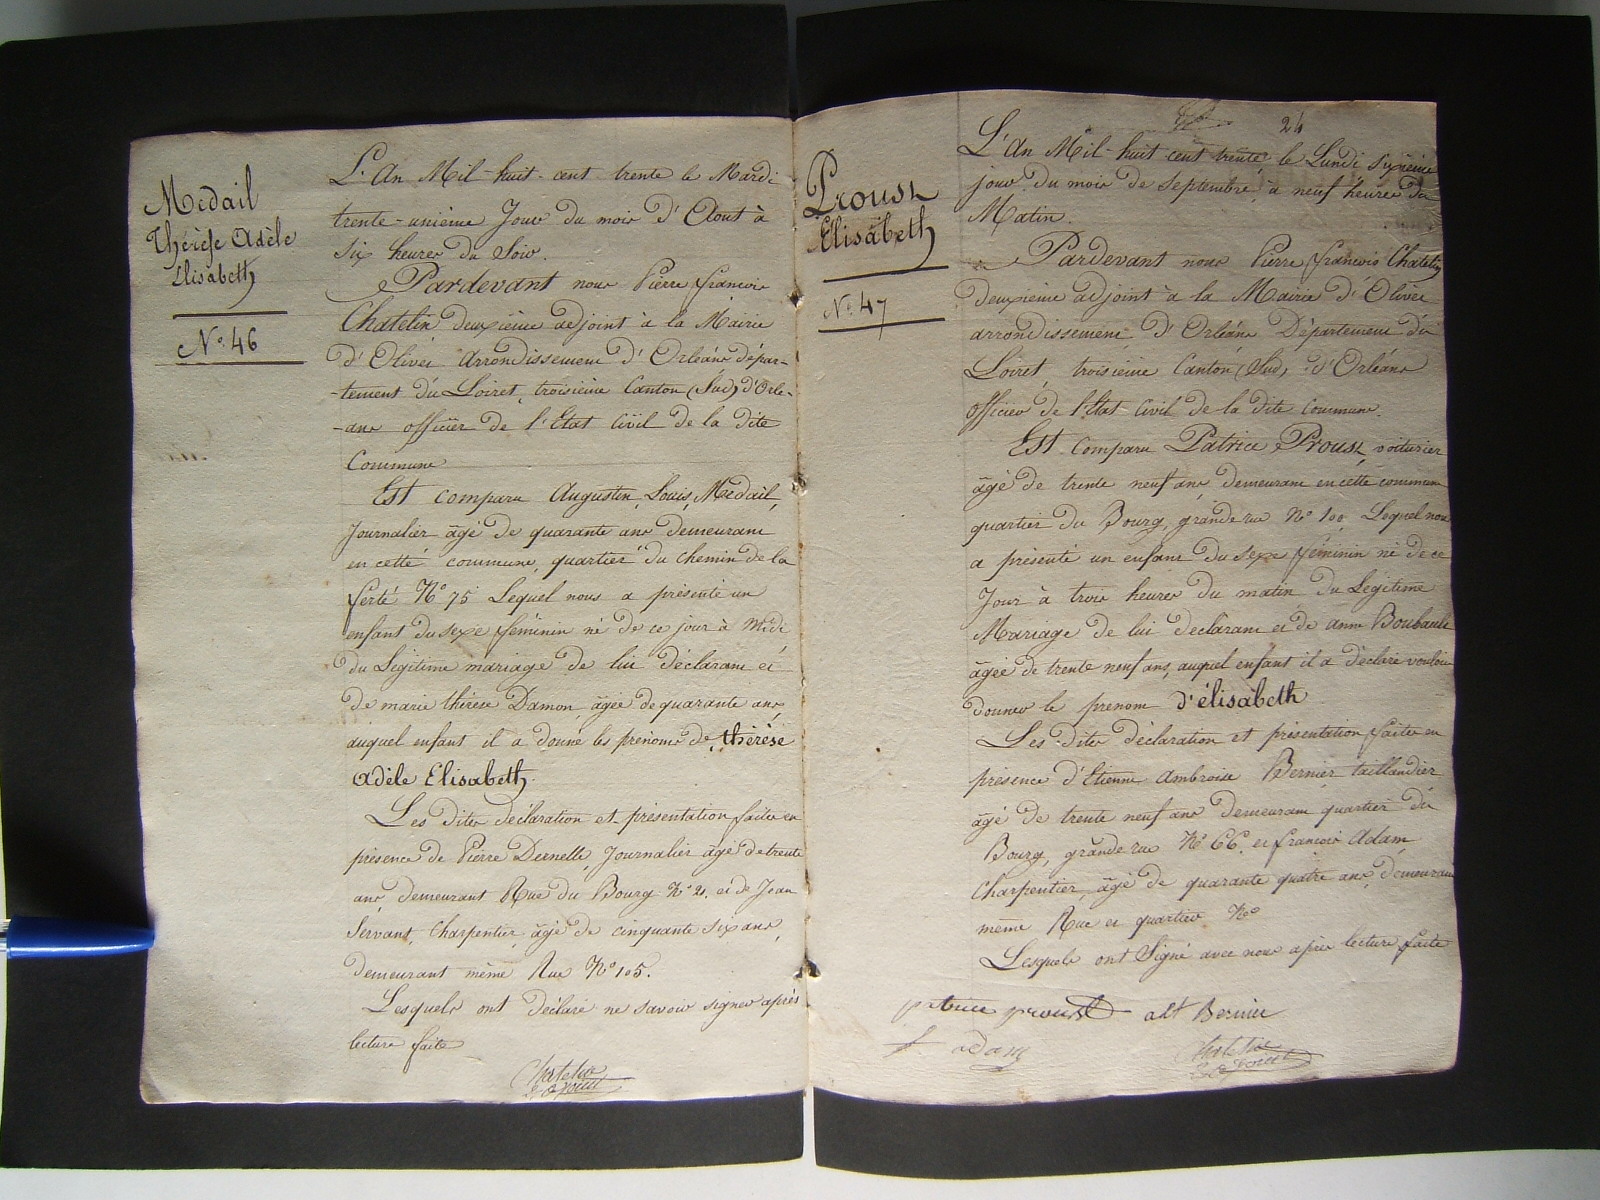 Medail
Thérèse Adèle
Elisabeth
N° 46
L'An Mil-huit-cent trente le Mardi
trente-unième Jour du mois d'Aout à
six heures du Soir.
Pardevant nous Pierre françois
Chatelin deuxième adjoint à la Mairie
d'Olivet arrondissement d'Orléans dépar-
-tement du Loiret, troisième Canton (Sud) d'Orlé-
-ans officier de l'Etat Civil de la dite
Commune
Est comparu Augustin, Louis, Médail,
Journalier âgé de quarante ans demeurant
en cette commune, quartier du chemin de la
ferté N° 75 Lequel nous a présenté un
enfant du sexe féminin né de ce jour à Midi
du Légitime mariage de lui déclarant et
de marie thérèse Damon, âgée de quarante ans,
auquel enfant il a donné les prénoms de, thérèse
adèle Elisabeth.
Les dites déclaration et présentation faites en
présence de Pierre Dernelle, Journalier âgé de trente
ans, demeurant Rue du Bourg N° 2. et de Jean
Servant, Charpentier, âgé de cinquante six ans,
demeurant même Rue N° 105.
Lesquels ont déclaré ne savoir signer après
lecture faite
Chatelin
24
Proust
Elisabeth
N° 47
L'An Mil-huit cent trente le Lundi sixième
jour du mois de Septembre, à neuf heures du
Matin.
Pardevant nous Pierre françois Chatelin
deuxième adjoint à la Mairie d'Olivet
arrondissement d'Orléans Département du
Loiret, troisième Canton (Sud) d'Orléans
officier de l'Etat Civil de la dite Commune.
Est comparu Patrice Proust, voiturier
âgé de trente neuf ans, demeurant en cette commune
quartier du Bourg, grande rue N° 100 Lequel nous
a présenté un enfant du sexe féminin né de ce
Jour à trois heures du matin du Légitime
Mariage de lui déclarant et de anne Boubault
âgée de trente neuf ans, auquel enfant il a déclaré vouloir
donner le prénom d'élisabeth
Les dites déclaration et présentation faites en
présence d'Etienne Ambroise Bernier taillandier
âgé de trente neuf ans demeurant quartier du
Bourg, grande rue N° 66. et françois Adam
Charpentier, âgé de quarante quatre ans, demeurant
même Rue et quartier N°
Lesquels ont Signé avec nous après lecture faite
patrice proust abt Bernier
f. adam
Chatelin